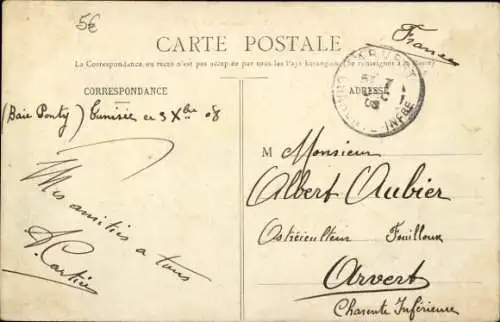 5€
France
CARTE POSTALE
La Correspondance au recto n'est pas acceptée par tous les Pays étrangers (Se renseigner à la Poste)
CORRESPONDANCE
ADRESSE
(Baie Ponty) Tunisie ce 3 Xbre 08
Mes amitiés a tous
A. Cartier
M Monsieur
Albert Aubier
Ostréiculteur Fouilloux
Arvert
Charente Inférieure
INFRE